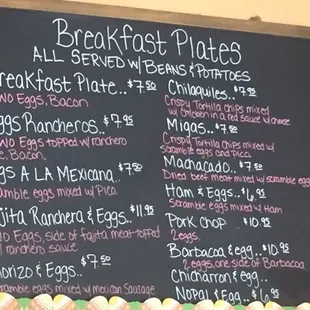 Breakfast Plates
ALL SERVED W/ BEANS & POTATOES
reakfast Plate..$7.50
wo Eggs, Bacon
ggs Rancheros..$7.95
wo Eggs topped w/ ranchero
e, Bacon.
gs A LA Mexicana..$7.50
amble eggs mixed w/ Pico
jita Ranchera & Eggs..$11.95
o Eggs, side of fajita meat topped
/ ranchero sauce
orizo & Eggs..$7.50
ramble eggs mixed w/ mexican Sausage
Chilaquiles..$7.50
Crispy Tortilla chips mixed
w/ chicken in a red sauce w/ cheese
Migas..$7.50
Crispy Tortilla chips mixed w/
scramble eggs and Pico
Machacado..$7.50
Dried beef meat mixed w/ scramble eggs
Ham & Eggs..$6.95
Scramble eggs mixed w/ Ham
Pork chop $10.95
2 eggs.
Barbacoa & egg..$10.95
2 eggs, one side of Barbacoa
Chicharron & egg..
Nopal & Egg..$6.95